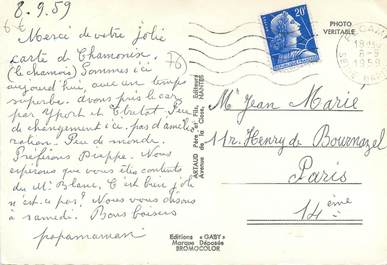 8.9.59
6€
Merci de votre jolie
carte de Chamonix.
(le chamois) Sommes ici
76
aujourd'hui, avec un temps
superbe. avons pris le car
par Yport et Etretat. Peu
de changement ici. pas d'amélio
ration. Peu de monde.
Préférons Dieppe. Nous
espérons que vous êtes contents
du Mt Blanc. C'est bien joli
n'est-ce pas? Nous vous disons
à samedi. Bons baisers
papamaman
PHOTO
VÉRITABLE
20F
1959
ARTAUD Père et Fils, Éditeurs
Avenue de la Close, NANTES
Editions « GABY »
Marque Déposée
BROMOCOLOR
Mr Jean Marié
11 r. Henry de Bournazel
Paris
14ème